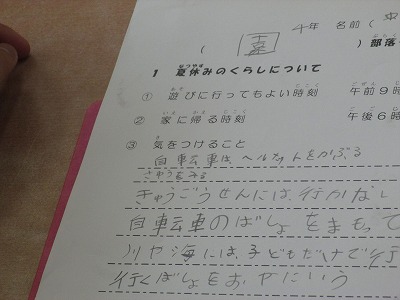 年 名前（
（　　）部落
1 夏休みのくらしについて
① 遊びに行ってもよい時刻 午前9時
② 家に帰る時刻 午後6時
③ 気をつけること
自転車は ヘルメットをかぶる
さゆうをみる
きゅうごうせんには、行かない
自転車のばしょをまもって
川や海には、子どもだけで行
行くばしょをおやにいう